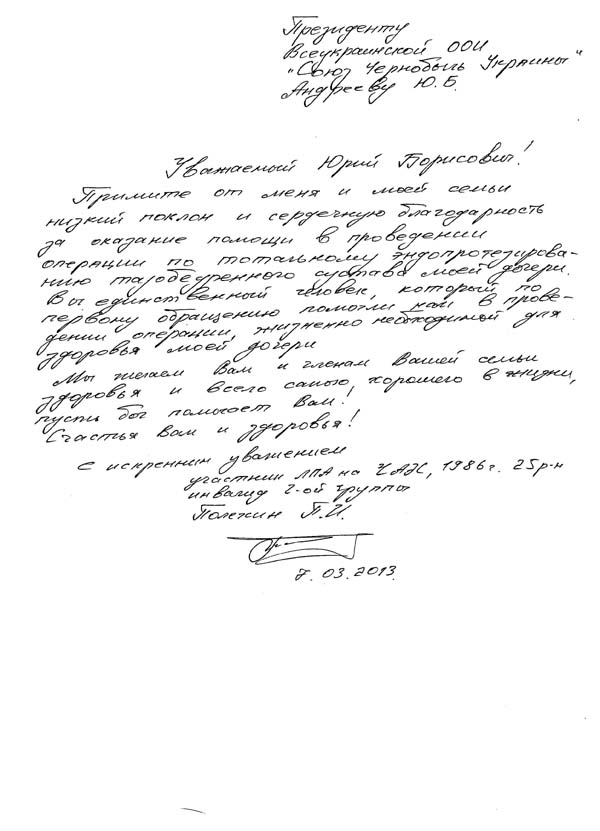 Президенту
Всеукраинской ООИ
"Союз Чернобыль Украины"
Андрееву Ю.Б.
Уважаемый Юрий Борисович!
Примите от меня и моей семьи
низкий поклон и сердечную благодарность
за оказание помощи в проведении
операции по тотальному эндопротезирова-
нию тазобедренного сустава моей дочери.
Вы единственный человек, который по
первому обращению помогли нам в прове-
дении операции, жизненно необходимой для
здоровья моей дочери
Мы желаем Вам и членам Вашей семьи
здоровья и всего самого, хорошего в жизни,
пусть бог помогает Вам!
Счастья Вам и здоровья!
С искренним уважением
участник ЛПА на ЧАЭС, 1986г. 25р-н
инвалид 2-ой группы
П.И.
7.03.2013.